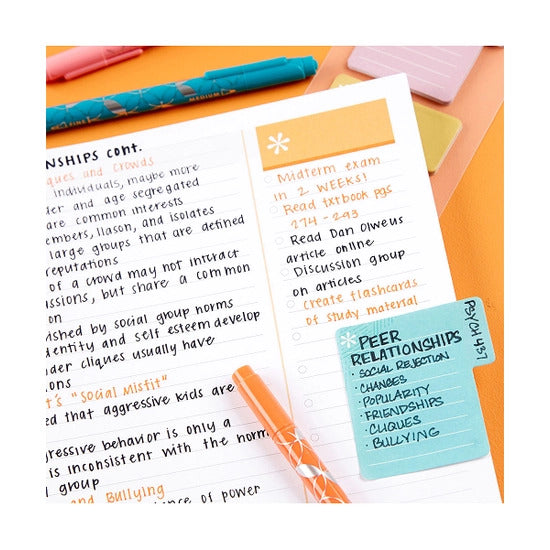 FINE
MEDIUM
NSHIPS cont.
ques and Crowds
individuals, maybe more
der and age segregated
are common interests
embers, liason, and isolates
large groups that are defined
reputations
of a crowd may not interact
ssions, but share a common
on
ished by social group norms
dentity and self esteem develop
nder cliques usually have
ions
t's "Social Misfit"
ed that aggressive kids are
gressive behavior is only a
is inconsistent with the norm
l group
and Bullying
ence of power
Midterm exam
in 2 WEEKS!
Read txtbook pgs
274 - 293
Read Dan Olweus
article online
Discussion group
on articles
Create flashcards
of study material
PEER
RELATIONSHIPS
· SOCIAL REJECTION
· CHANGES
· POPULARITY
· FRIENDSHIPS
· CLIQUES
· BULLYING
PSYCH 437